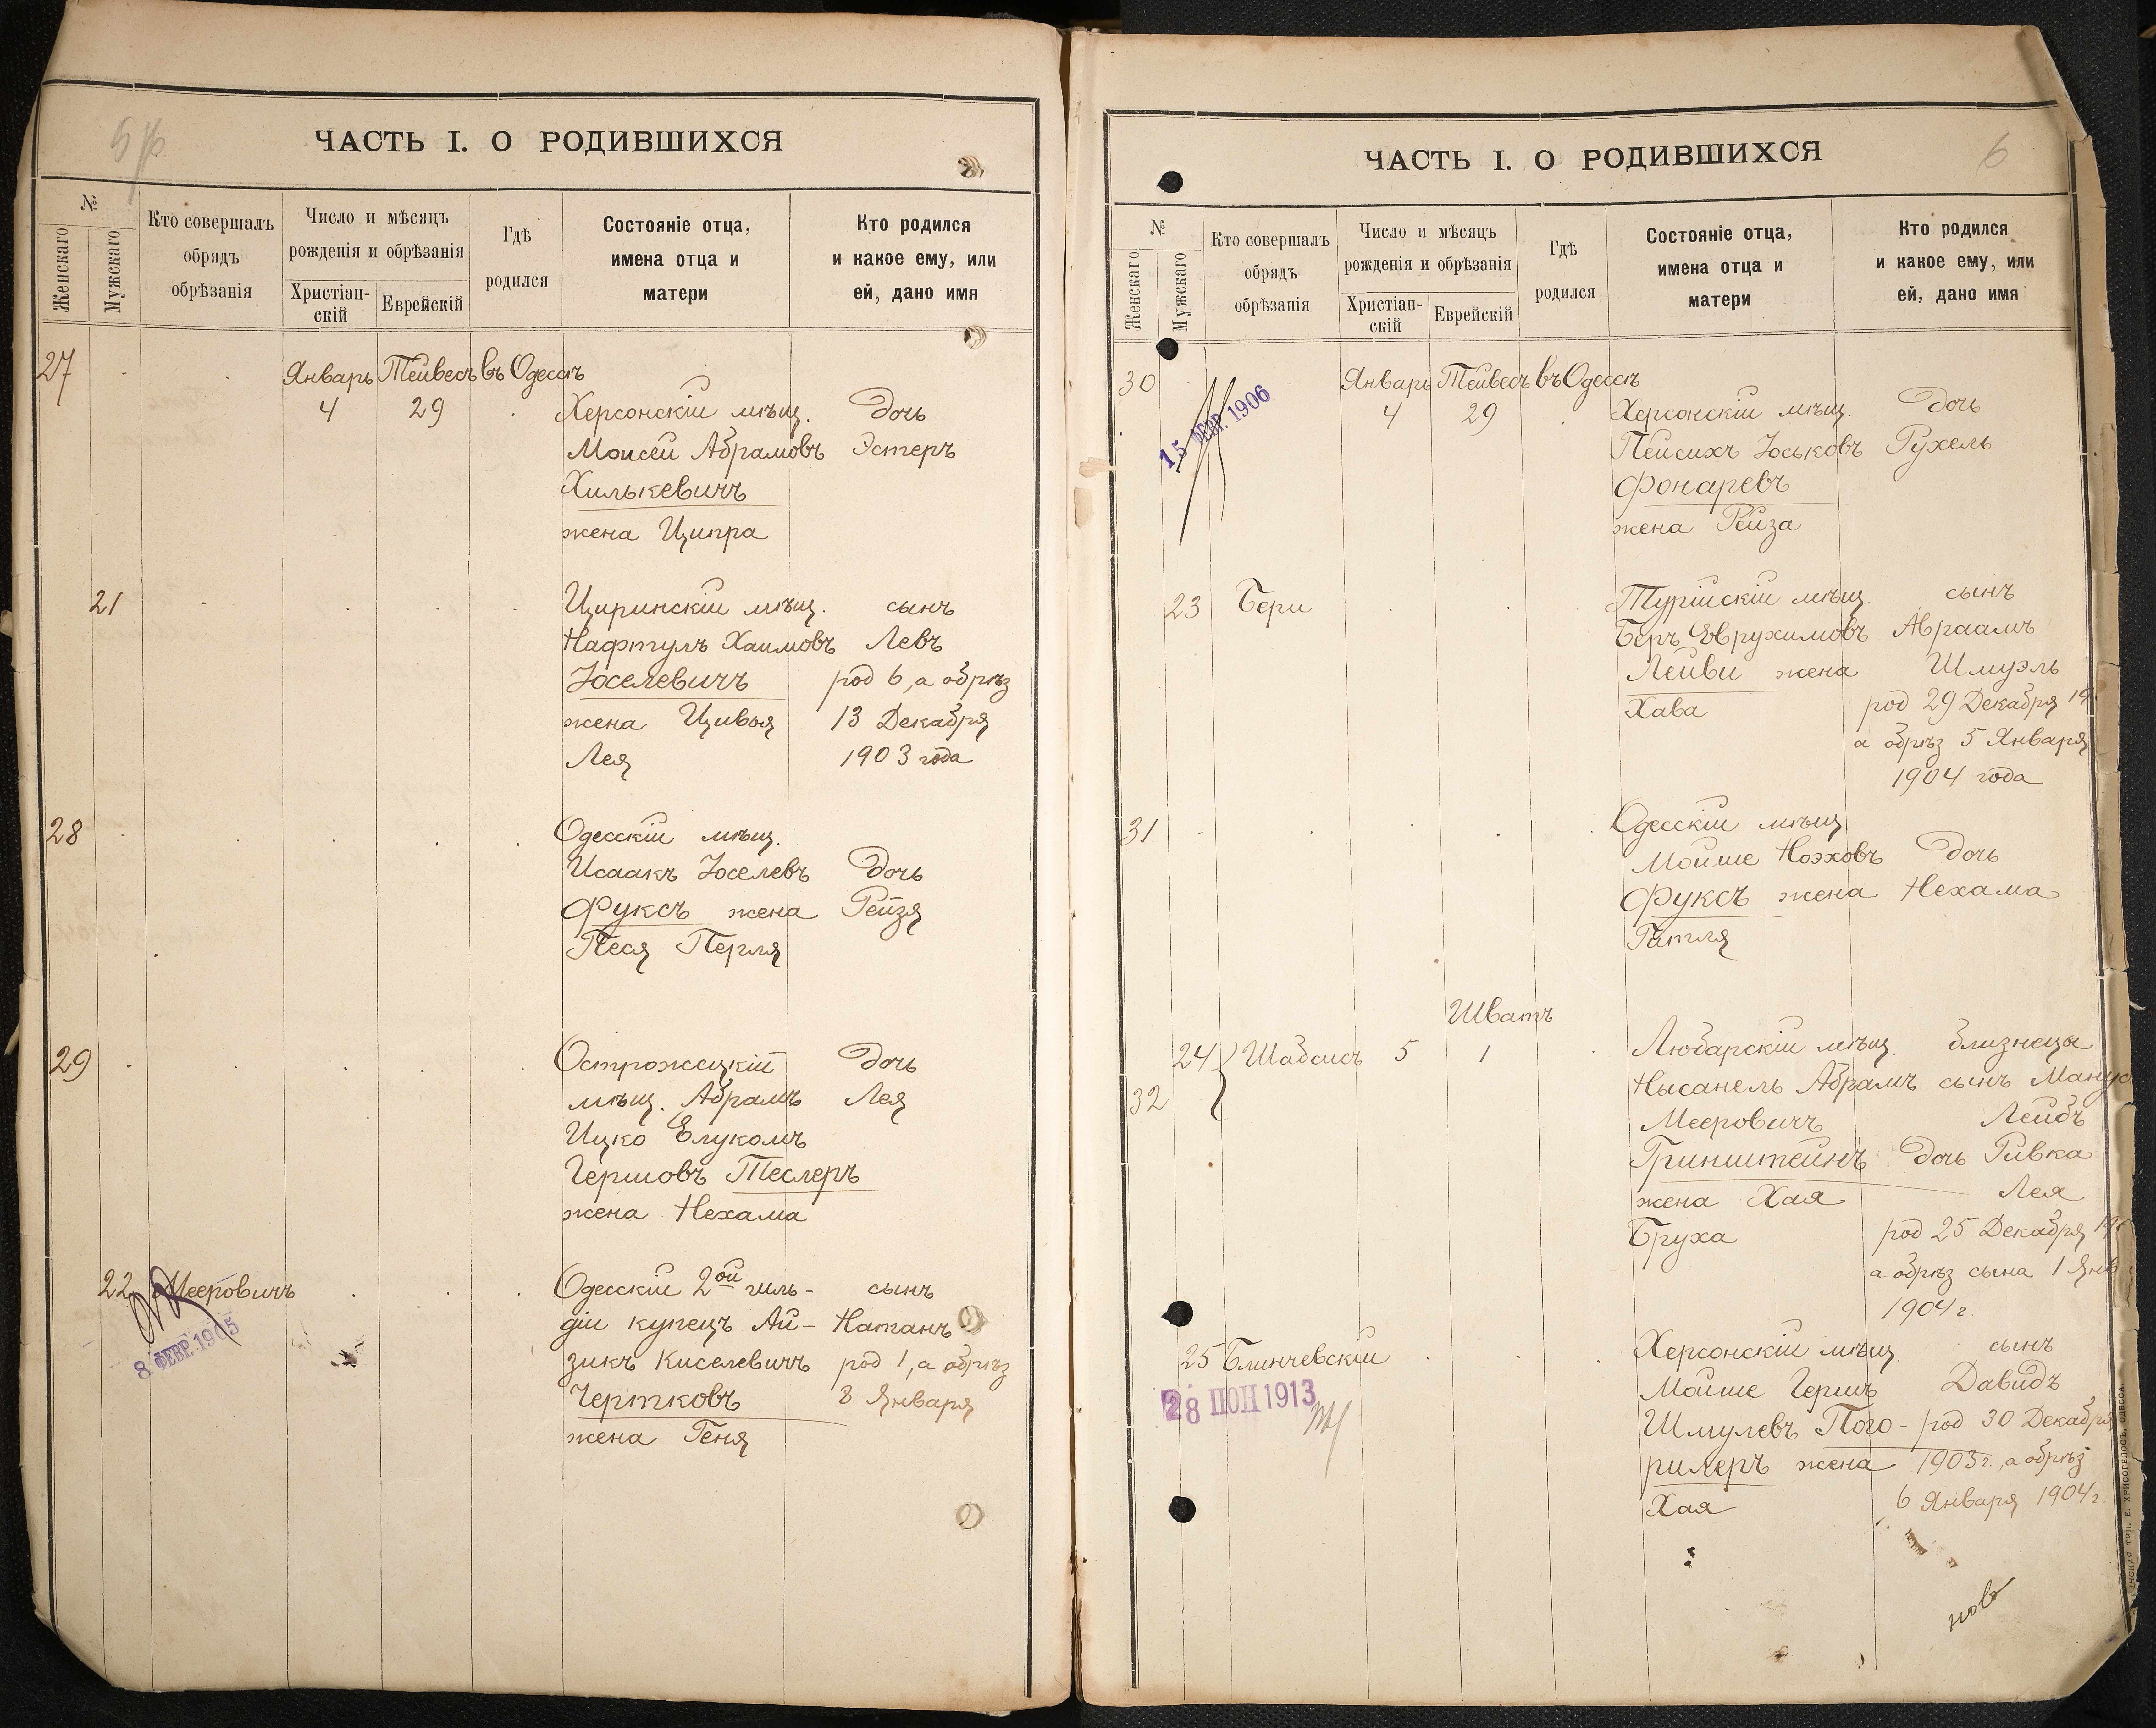 ЧАСТЬ I. О РОДИВШИХСЯ
№
Женскаго
Мужскаго
Кто совершалъ
обрядъ
обрѣзанія
Число и мѣсяцъ
рожденія и обрѣзанія
Христіан-
скій
Еврейскій
Гдѣ
родился
Состояніе отца,
имена отца и
матери
Кто родился
и какое ему, или
ей, дано имя
27 Январь Тейвесъ въ Одессѣ
4 29 Херсонскій мѣщ. Дочь
Моисей Абрамовъ Эстеръ
Хилькевичъ
жена Ципра
21 Циринскій мѣщ. сынъ
Нафтулъ Хаимовъ Левъ
Іоселевичъ род 6, а обрѣз
жена Цивья 13 Декабря
Лея 1903 года
28 Одесскій мѣщ.
Исаакъ Іоселевъ Дочь
Фуксъ жена Рейзя
Песя Перля
29 Острожецкій Дочь
мѣщ. Абрамъ Лея
Ицко Елукомъ
Гершовъ Теслеръ
жена Нехама
22 Мееровичъ Одесскій 2ой гиль- сынъ
8 ФЕВР. 1905
діи купецъ Ай- Натанъ
зикъ Киселевичъ род 1, а обрѣз
Чертковъ 8 Января
жена Геня
ЧАСТЬ I. О РОДИВШИХСЯ
6
№
Женскаго
Мужскаго
Кто совершалъ
обрядъ
обрѣзанія
Число и мѣсяцъ
рожденія и обрѣзанія
Христіан-
скій
Еврейскій
Гдѣ
родился
Состояніе отца,
имена отца и
матери
Кто родился
и какое ему, или
ей, дано имя
30 Январь Тейвесъ въ Одессѣ
15 ФЕВР. 1906
4 29 Херсонскій мѣщ. Дочь
Пейсихъ Іоськовъ Рухель
Фонаревъ
жена Рейза
23 Бери Турійскій мѣщ. сынъ
Беръ Еврухимовъ Авраамъ
Лейви жена Шмуэль
Хава род 29 Декабря 19
а обрѣз 5 Января
1904 года
31 Одесскій мѣщ.
Мойше Ноэховъ Дочь
Фуксъ жена Нехама
Гитля
Шватъ
24 Шабсисъ 5 1 Любарскій мѣщ. близнецы
32 Нысанель Абрамъ сынъ
Мееровичъ Лейбъ
Гринштейнъ Дочь Ривка
жена Хая Лея
Бруха род 25 Декабря 190
а обрѣз сына 1 Янв
1904 г.
25 Блинчевскій Херсонскій мѣщ. сынъ
28 1913
Мойше Гершъ Давидъ
Шмулевъ Пого- род 30 Декабря
рилеръ жена 1903 г., а обрѣз
Хая 6 Января 1904 г.
ТИП. Е. ХРИСОГЕЛОСЪ, ОДЕССА.